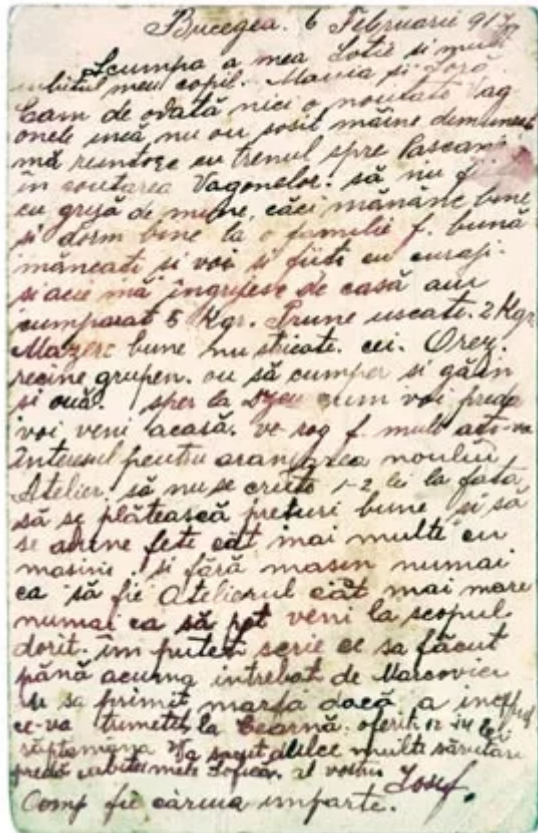 Bucegea. 6 Februarie 917
Scumpa a mea Sotie si mult
iubitul meu copil. Maria si
Cam de odată nici o noutate Vag
onele incă nu au sosit măine demineată
mă reintorc cu trenul spre Pascani
in coutarea Vagonelor. să nu fiti
cu grijă de mine, căci mănânc bine
si dorm bine la o familie f. bună
măncati si voi si fiti cu curaj.
si aice mă ingrijesc de casă am
cumparat 5 Kgr. Prune uscate. 2 Kgr.
Mazere bune nu stricate. cei. Orez.
recine grupen. ou să cumper si găin
si ouă. sper la cum voi preda
voi veni acasă. ve rog f. mult
Interesul pentru aranjarea noului
Atelier. să nu se crute 1-2 lei la fată
să se plătească preturi bune si să
se adune fete căt mai multe cu
masini si fără masin numai
ca să fie Atelierul căt mai mare
numai ca să pot veni la scopul
dorit. im puteti scrie ce sa făcut
pănă acuma intrebat de Marcovici
sa primit marfa dacă a
ce-va la oferit 12-14 lei
săptamana dulce multe sărutari
predă iubitei mele Sofica. al vostru Iosif.
Comp fie carma imparte.